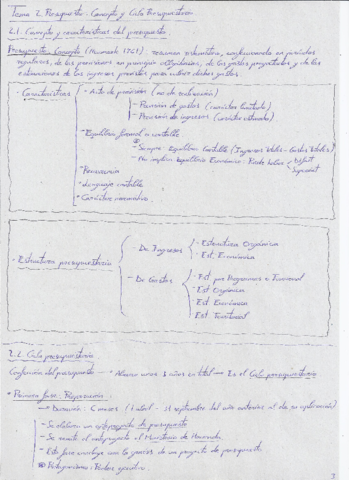 Tema 2. Presupuesto. Concepto y Ciclo Presupuestario.
2.1. Concepto y características del presupuesto.
Presupuesto: Concepto (Neumark 1961): resumen sistemático, confeccionado en períodos
regulares, de las previsiones en principio obligatorias, de los gastos proyectados, y de las
estimaciones de los ingresos previstos para cubrir dichos gastos.
- Características
- Acto de previsión (no de realización)
- Previsión de gastos (carácter limitado)
- Previsión de ingresos (carácter estimado)
- Equilibrio formal o contable
- Siempre - Equilibrio Contable (Ingresos totales = Gastos totales)
- No implica Equilibrio Económico - Puede haber Déficit
Superávit
- Lenguaje contable
- Carácter normativo
- Estructura presupuestaria
- De Ingresos
- Estructura Orgánica
- Est. Económica
- De Gastos
- Est. por Programas o Funcional
- Est. Orgánica
- Est. Económica
- Est. Territorial
2.2. Ciclo presupuestario
Confección del presupuesto → Abarca unos 3 años en total → Es el Ciclo presupuestario
* Primera fase: Preparación.
→ Duración: 6 meses (1 abril - septiembre del año anterior al de su aplicación)
- Se elabora un anteproyecto de presupuesto
- Se remite el anteproyecto al Ministerio de Hacienda
- Esta fase concluye con la de un proyecto de presupuesto
Protagonismo: Poder ejecutivo
3